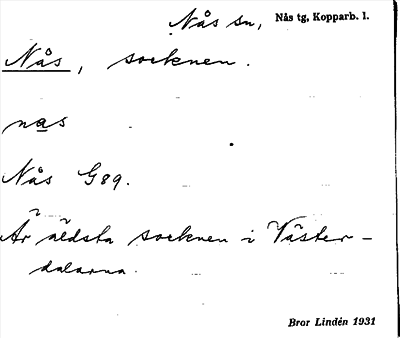 Nås sn, Nås tg, Kopparb. l.
Nås, socknen.
nas
Nås G89.
Är äldsta socknen i Väster-
dalarna.
Bror Lindén 1931